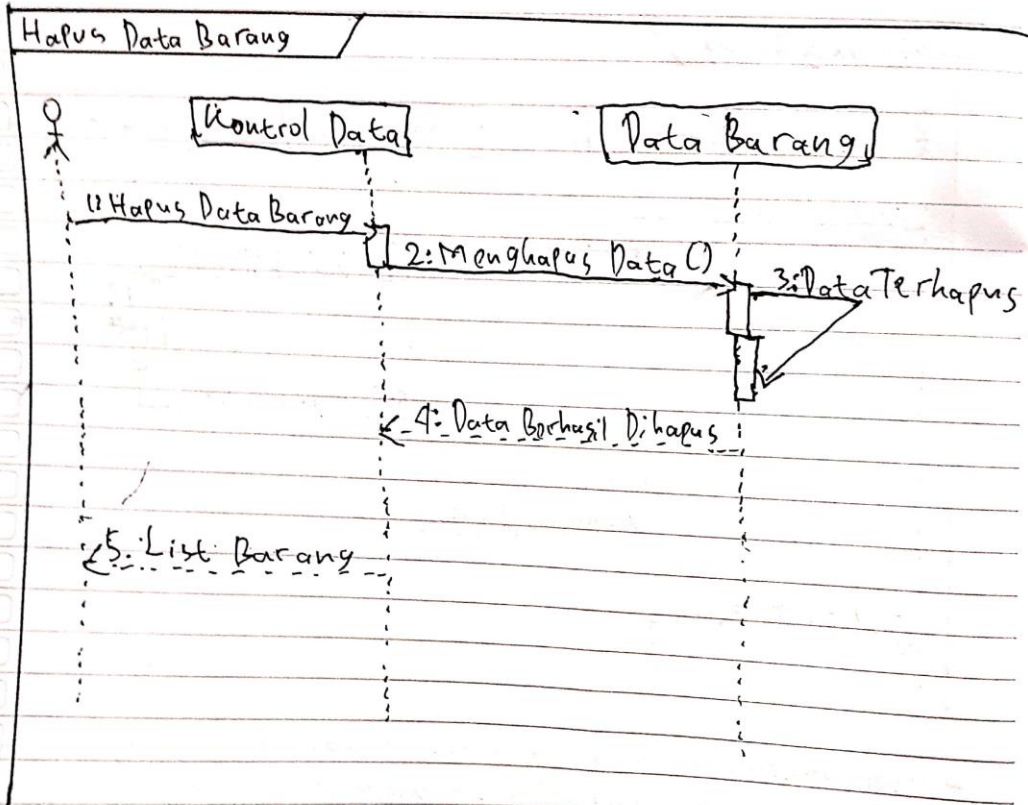 Hapus Data Barang
Kontrol Data
Data Barang
1: Hapus Data Barang
2: Menghapus Data ()
3: Data Terhapus
4: Data Berhasil Dihapus
5. List Barang